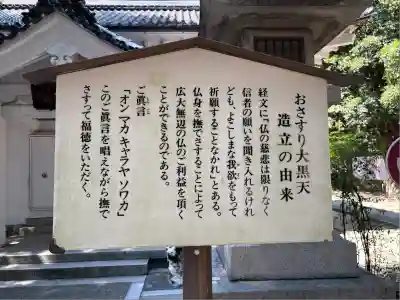 おさすり大黒天
造立の由来
経文に『仏の慈悲は限りなく
信者の願いを聞き入れるけれ
ども、よこしまな我欲をもって
祈願することなかれ』とある。
仏身を撫でさすることによって
広大無辺の仏のご利益を頂く
ことができるのである。
ご眞言
「オン マカ キャラヤ ソワカ」
このご眞言を唱えながら撫で
さすって福徳をいただく。